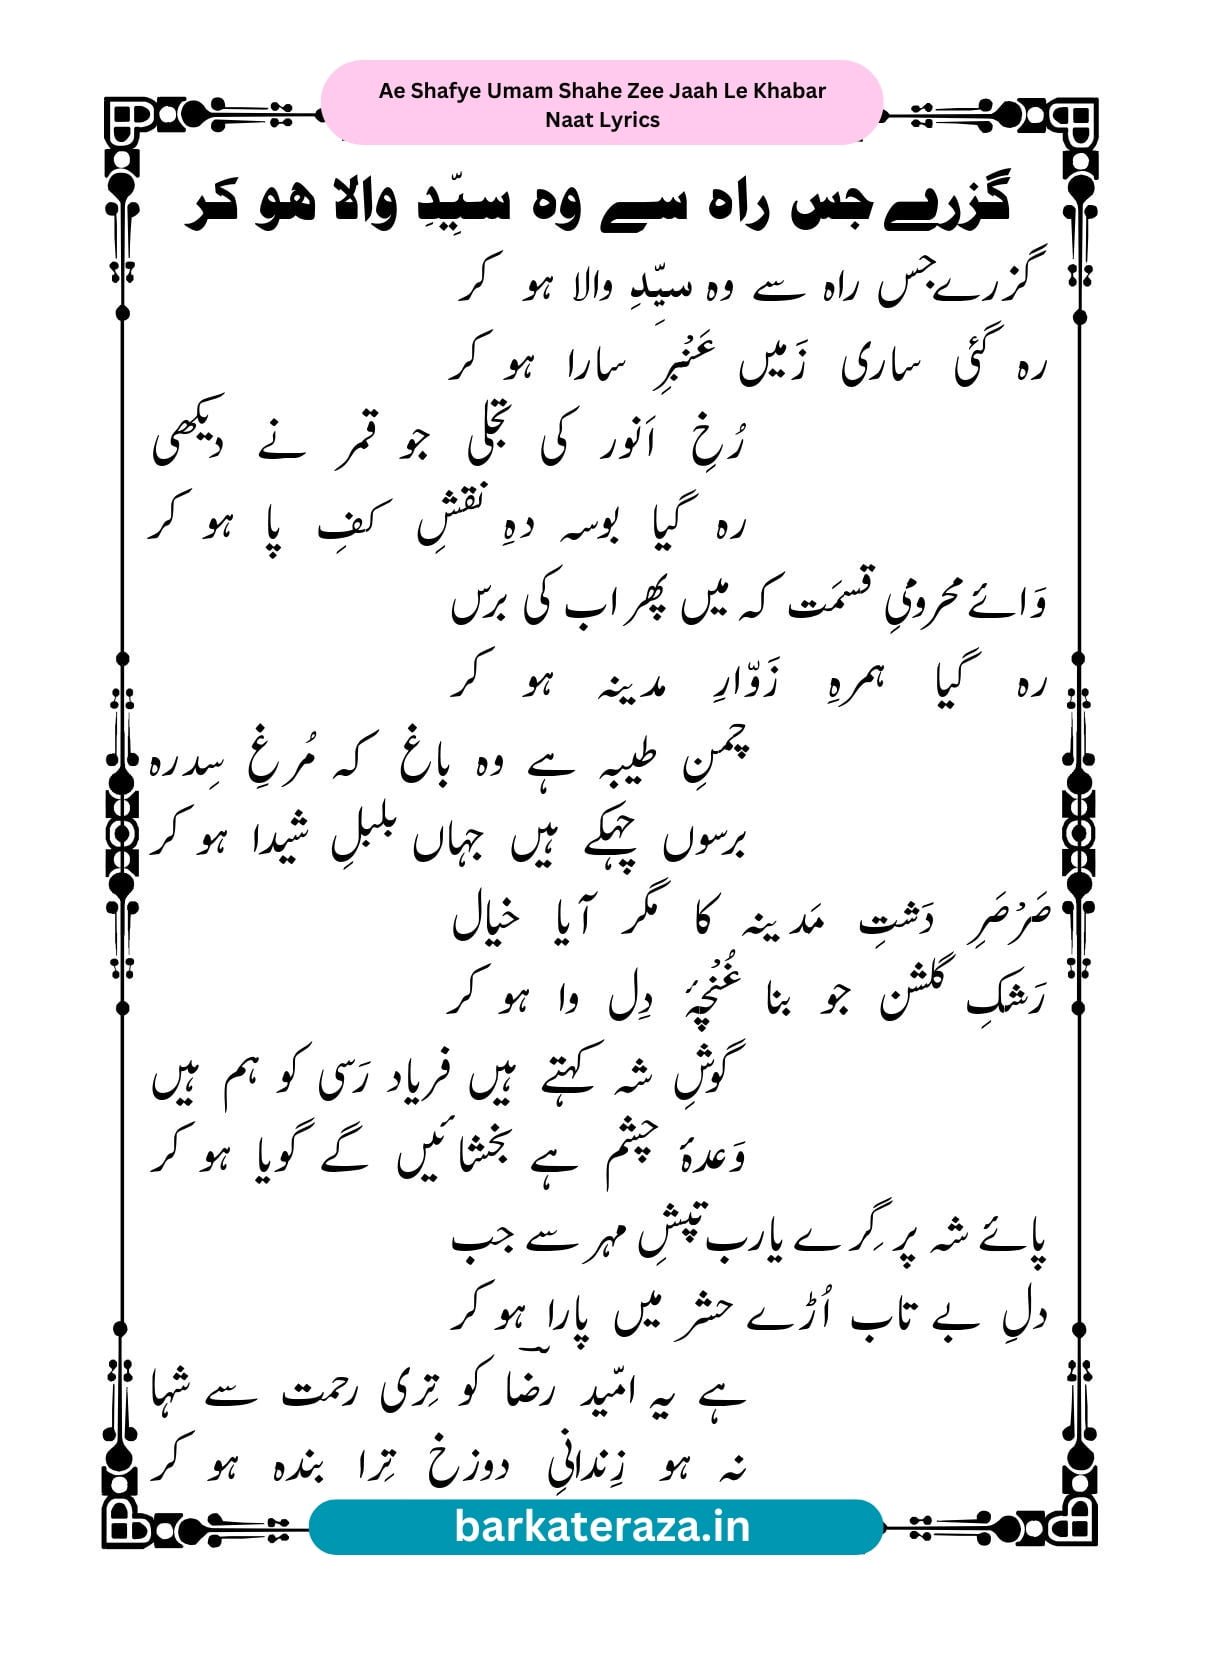 Ae Shafye Umam Shahe Zee Jaah Le Khabar
Naat Lyrics
گزرے جس راہ سے وہ سیِّدِ والا ھو کر
گزرے جس راہ سے وہ سیِّدِ والا ہو کر
رہ گئی ساری زَمیں عَنْبرِ سارا ہو کر
رُخِ اَنور کی تجلی جو قمر نے دیکھی
رہ گیا بوسہ دہِ نقشِ کفِ پا ہو کر
وَائے محرومیِ قسمَت کہ میں پھر اب کی برس
رہ گیا ہمرہِ زَوّارِ مدینہ ہو کر
چمنِ طیبہ ہے وہ باغ کہ مُرغِ سِدرہ
برسوں چہکے ہیں جہاں بلبلِ شیدا ہو کر
صَرْصَرِ دَشتِ مَدینہ کا مگر آیا خیال
رَشکِ گلشن جو بنا غُنْچۂ دِل وا ہو کر
گوشِ شہ کہتے ہیں فریاد رَسی کو ہم ہیں
وَعدۂ چشم ہے بخشائیں گے گویا ہو کر
پائے شہ پر گِرے یارب تپشِ مہر سے جب
دلِ بے تاب اُڑے حشر میں پارا ہو کر
ہے یہ امّید رضا کو تِری رحمت سے شہا
نہ ہو زِندانیِ دوزخ تِرا بندہ ہو کر
barkateraza.in